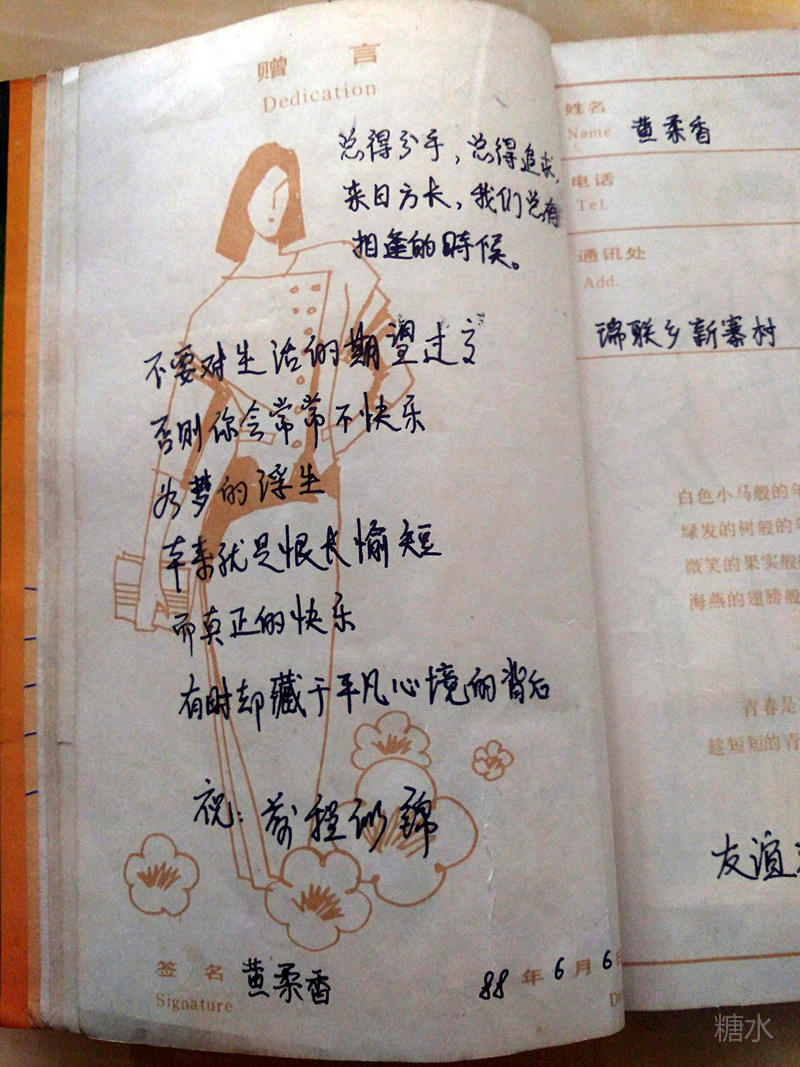 赠言
Dedication
总得分手，总得追求，
来日方长，我们总有
相逢的時候。
不要对生活的期望过高
否则你会常常不快乐
如梦的浮生
本来就是恨长愉短
而真正的快乐
有时却藏于平凡心境的背后
祝：前程似錦
签名 黄柔香
Signature
88年6月6日
姓名
Name 黄柔香
电话
Tel.
通讯处
Add.
瑞联乡新寨村
白色小马般的年
绿发的树般的年
微笑的果实般
海燕的翅膀般
青春是
越短短的青
友谊
糖水